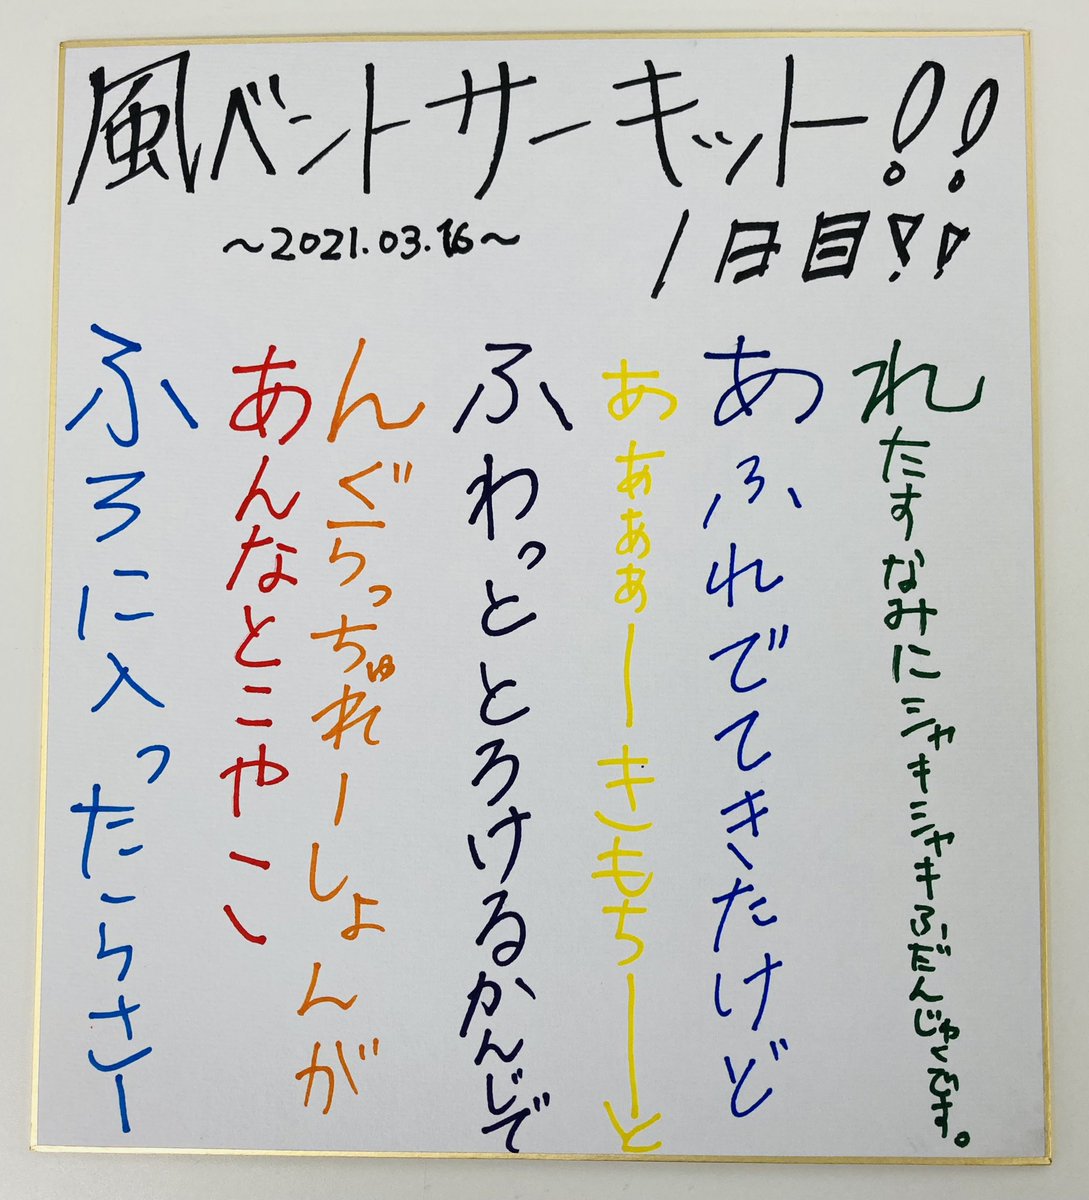 風ベントサーキット!!
~2021.03.16~
1日目!!
ふろに入ったらさー
あんなとこや、、
んぐらっちゅれーしょんが
ふわっととろけるかんじで
あぁぁぁーきもちーと
あふれでてきたけど
れたすなみにシャキシャキふだんじゃくです。